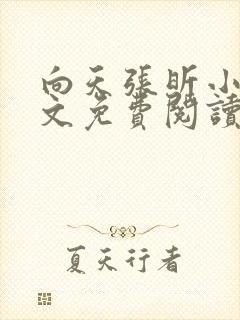 向天張昕小
文免費閱讀
夏天行者